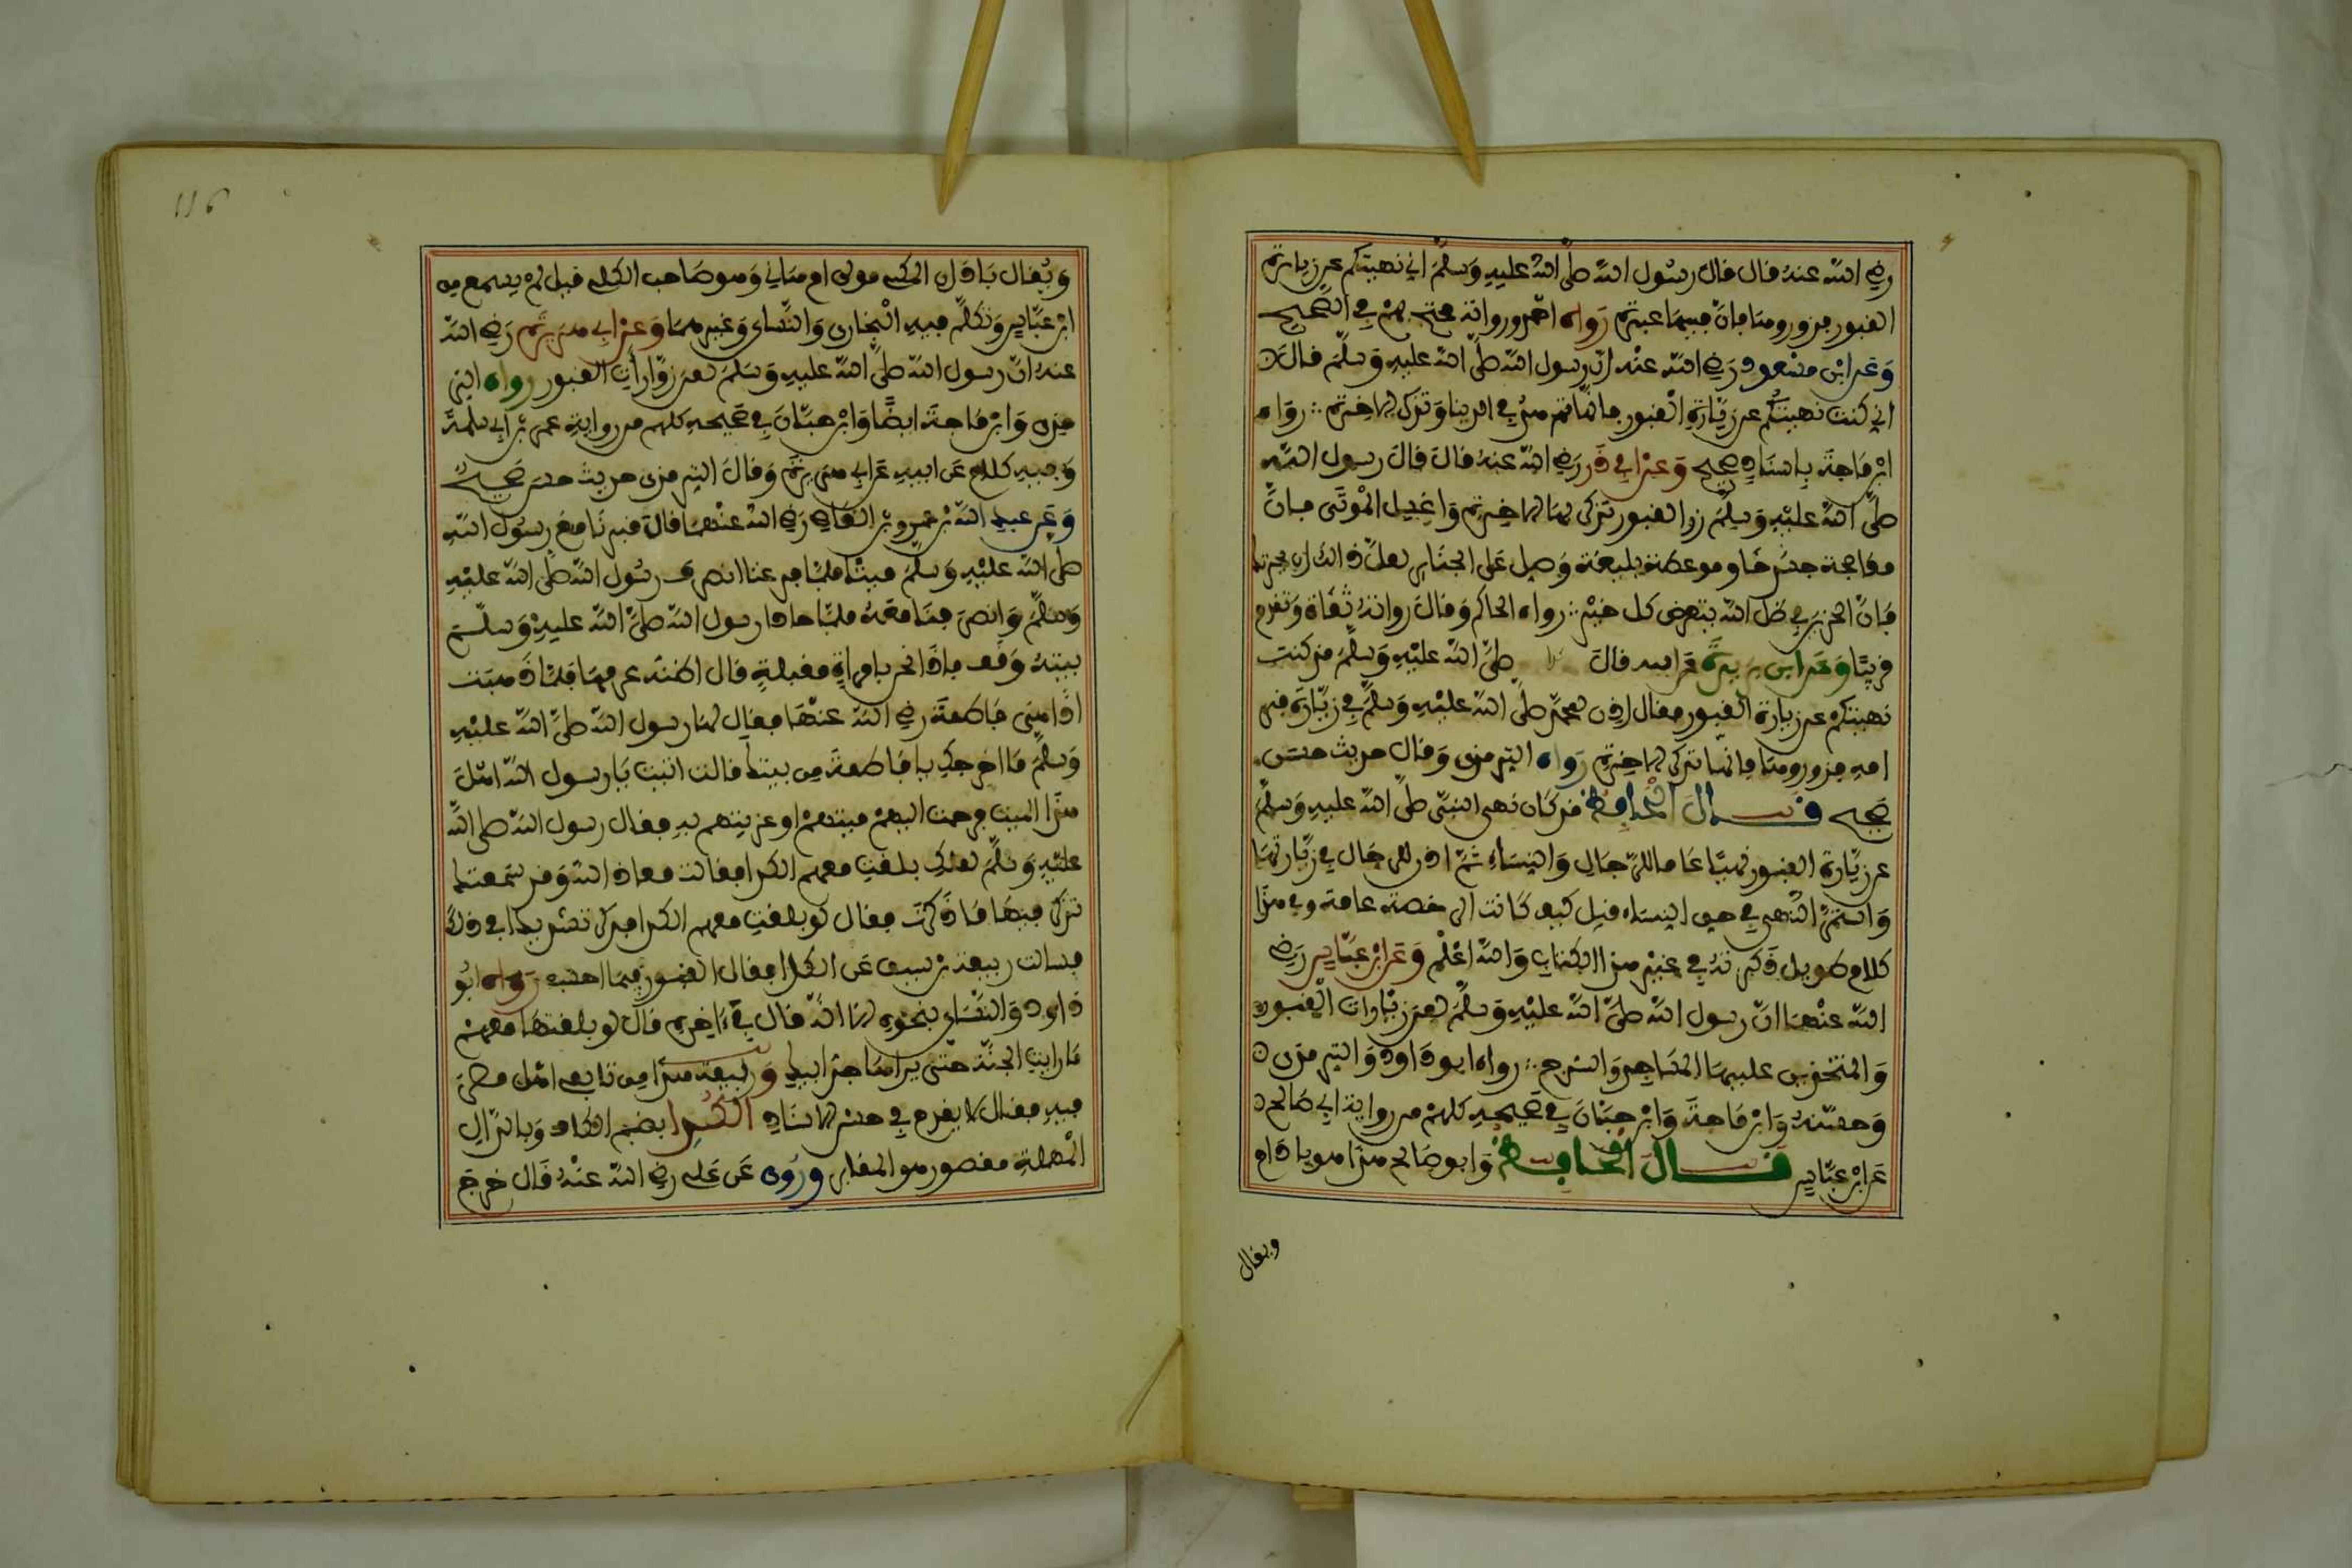 رضي الله عنه قال قال رسول الله صلى الله عليه وسلم اني نهيتكم عن زيارة
القبور فزوروها فإن فيها عبرة رواه احمد ورواته محتج بهم في الصحيح
وعن ابن مسعود رضي الله عنه ان رسول الله صلى الله عليه وسلم قال
اني كنت نهيتكم عن زيارة القبور فإنها تزهد في الدنيا وتذكر الاخرة رواه
ابن ماجة بإسناد صحيح وعن ابي ذر رضي الله عنه قال قال رسول الله
صلى الله عليه وسلم زر القبور تذكر بها الاخرة واغسل الموتى فإن
معالجة جسد خاو موعظة بليغة وصل على الجنائز لعل ذالك ان يحزنك
فإن الحزين في ظل الله يتعرض كل خير رواه الحاكم وقال رواته ثقاة وتقدم
قريبا وعن ابن بريدة عن ابيه قال صلى الله عليه وسلم قد كنت
نهيتكم عن زيارة القبور فقال اذن لمحمد صلى الله عليه وسلم في زيارة قبر
امه فزوروها فإنها تذكر الاخرة رواه الترمذي وقال حديث حسن
صحيح قال الحافظ قد كان نهى النبي صلى الله عليه وسلم
عن زيارة القبور نهيا عاما للرجال والنساء ثم اذن للرجال في زيارتها
واستمر النهي في حق النساء قيل كيف كانت الرخصة عامة وفي هذا
كلام طويل ذكرته في غير هذا الكتاب والله اعلم وعن ابن عباس رضي
الله عنهما ان رسول الله صلى الله عليه وسلم لعن زيارات القبور
والمتخذين عليها المساجد والسرج رواه ابو داود والترمذي
وحسنه وابن ماجة وابن حبان في صحيحه كلهم من رواية ابي صالح
عن ابن عباس قال الحافظ وابو صالح هذا هو باذام
ويقال
116
ويقال باذان المكي مولى ام هاني وهو صاحب الكلبي قيل لم يسمع من
ابن عباس وتكلم فيه البخاري والنساي وغيرهما وعن ابي هريرة رضي الله
عنه ان رسول الله صلى الله عليه وسلم لعن زوارات القبور رواه التر
مذي وابن ماجة ايضا وابن حبان في صحيحه كلهم من رواية عمر بن ابي سلمة
وفيه كلام عن ابيه عن ابي هريرة وقال الترمذي حديث حسن صحيح
وعن عبد الله بن عمرو بن العاص رضي الله عنهما قال قبرنا مع رسول الله
صلى الله عليه وسلم ميتا فلما فرغنا انصرف رسول الله صلى الله عليه
وسلم وانصرفنا معه فلما حاذا رسول الله صلى الله عليه وسلم
بيته وقف فإذا نحن بامراة مقبلة قال اظنه عرفها فلما ذهبت
اذا هي فاطمة رضي الله عنها فقال لها رسول الله صلى الله عليه
وسلم ما اخرجك يا فاطمة من بيتك قالت اتيت يا رسول الله اهل
هذا الميت فرحمت اليهم ميتهم او عزيتهم به فقال رسول الله صلى الله
عليه وسلم لعلك بلغت معهم الكدا فقالت معاذ الله وقد سمعتك
تذكر فيها ما ذكرت فقال لو بلغت معهم الكدا فذكر تشديدا في ذلك
فسالت ربيعة بن سيف عن الكدا فقال القبور فيما احسب رواه ابو
داود والنساي بنحوه الا انه قال في ءاخره فقال لو بلغتها معهم
ما رايت الجنة حتى يراها جد ابيك وربيعة هذا من تابعي اهل مصر
فيه مقال لا يقدح في حسن الاسناد الكدا بضم الكاف وبالدال
المهملة مقصور هو المقابر وروي عن علي رضي الله عنه قال خرج